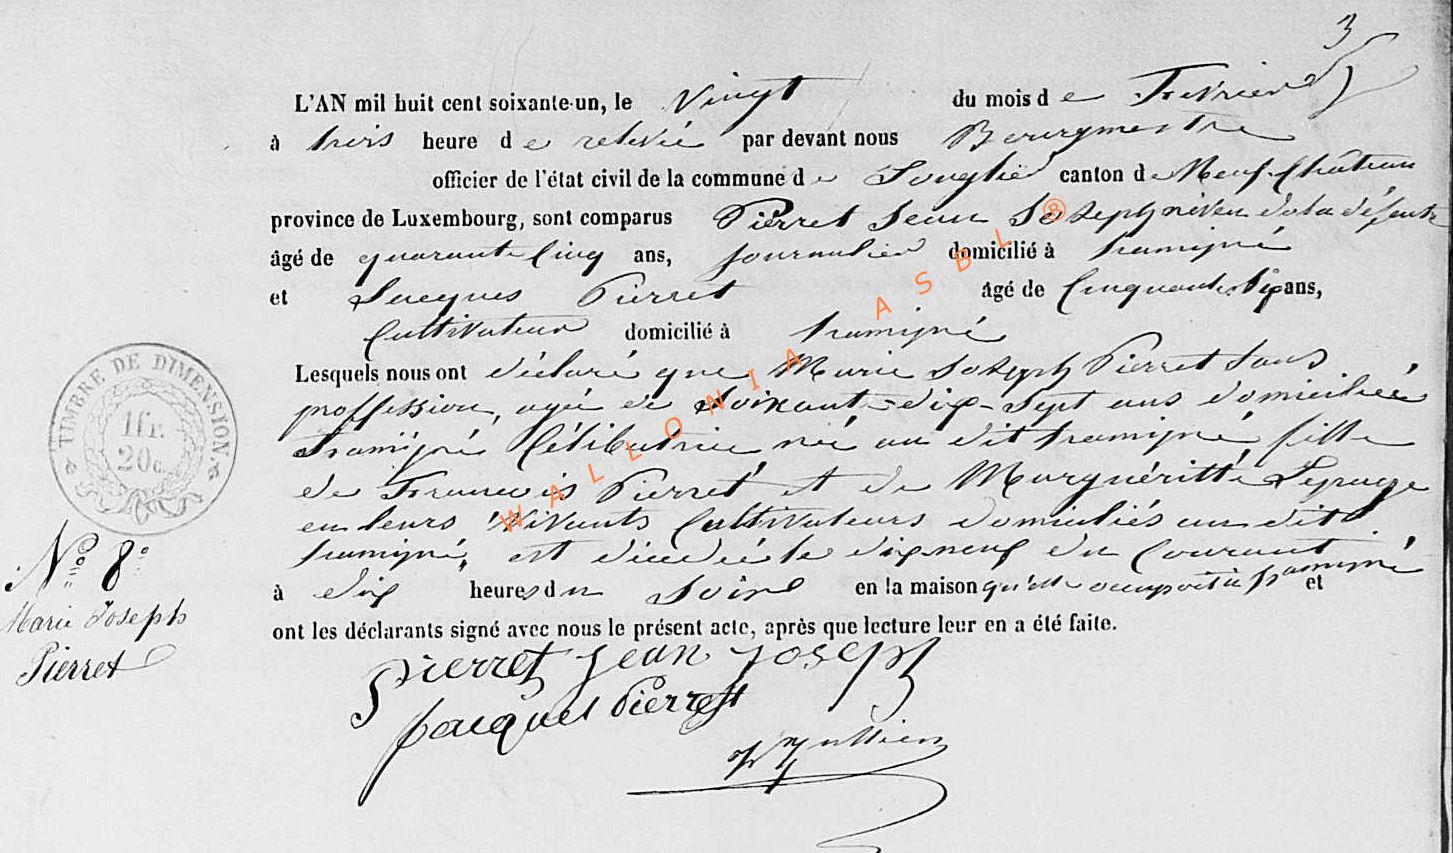 3
L'AN mil huit cent soixante-un, le Vingt du mois de Fevrier
à trois heure de relevée par devant nous Bourgmestre
officier de l'état civil de la commune de Longlier canton de Neufchâteau
province de Luxembourg, sont comparus Pierret Jean Joseph neveu de la défunte
âgé de quarante Cinq ans, journalier domicilié à tramigné
et Jacques Pierret âgé de Cinquante ans,
Cultivateur domicilié à tramigné
Lesquels nous ont déclaré que Marie Joseph Pierret Sans
proffession, agée de Soixante-dix-Sept ans domiciliée
tramigné Célibatrice née au dit tramigné fille
de Francois Pierret et de Marguéritte Lepage
en leurs Vivants Cultivateurs domiciliés au dit
tramigné, est décédée le dix neuf du Courant
à dix heures du Soire en la maison qu'elle occupoit à tramigné et
ont les déclarants signé avec nous le présent acte, après que lecture leur en a été faite.
TIMBRE DE DIMENSION.
1fr.
20c.
N° 8
Marie Joseph
Pierret
Pierret Jean Joseph
Jacques Pierret
WALLONIA ASBL ®